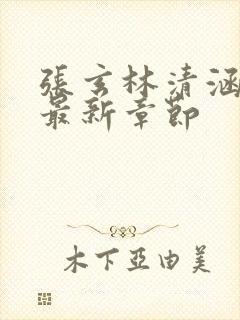 張玄林清涵
最新章節
木下亞由美